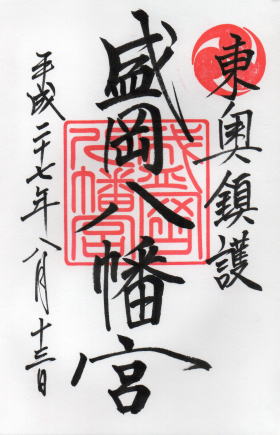 東奥鎮護
盛岡八幡宮
平成二十七年八月十三日
盛岡八幡宮